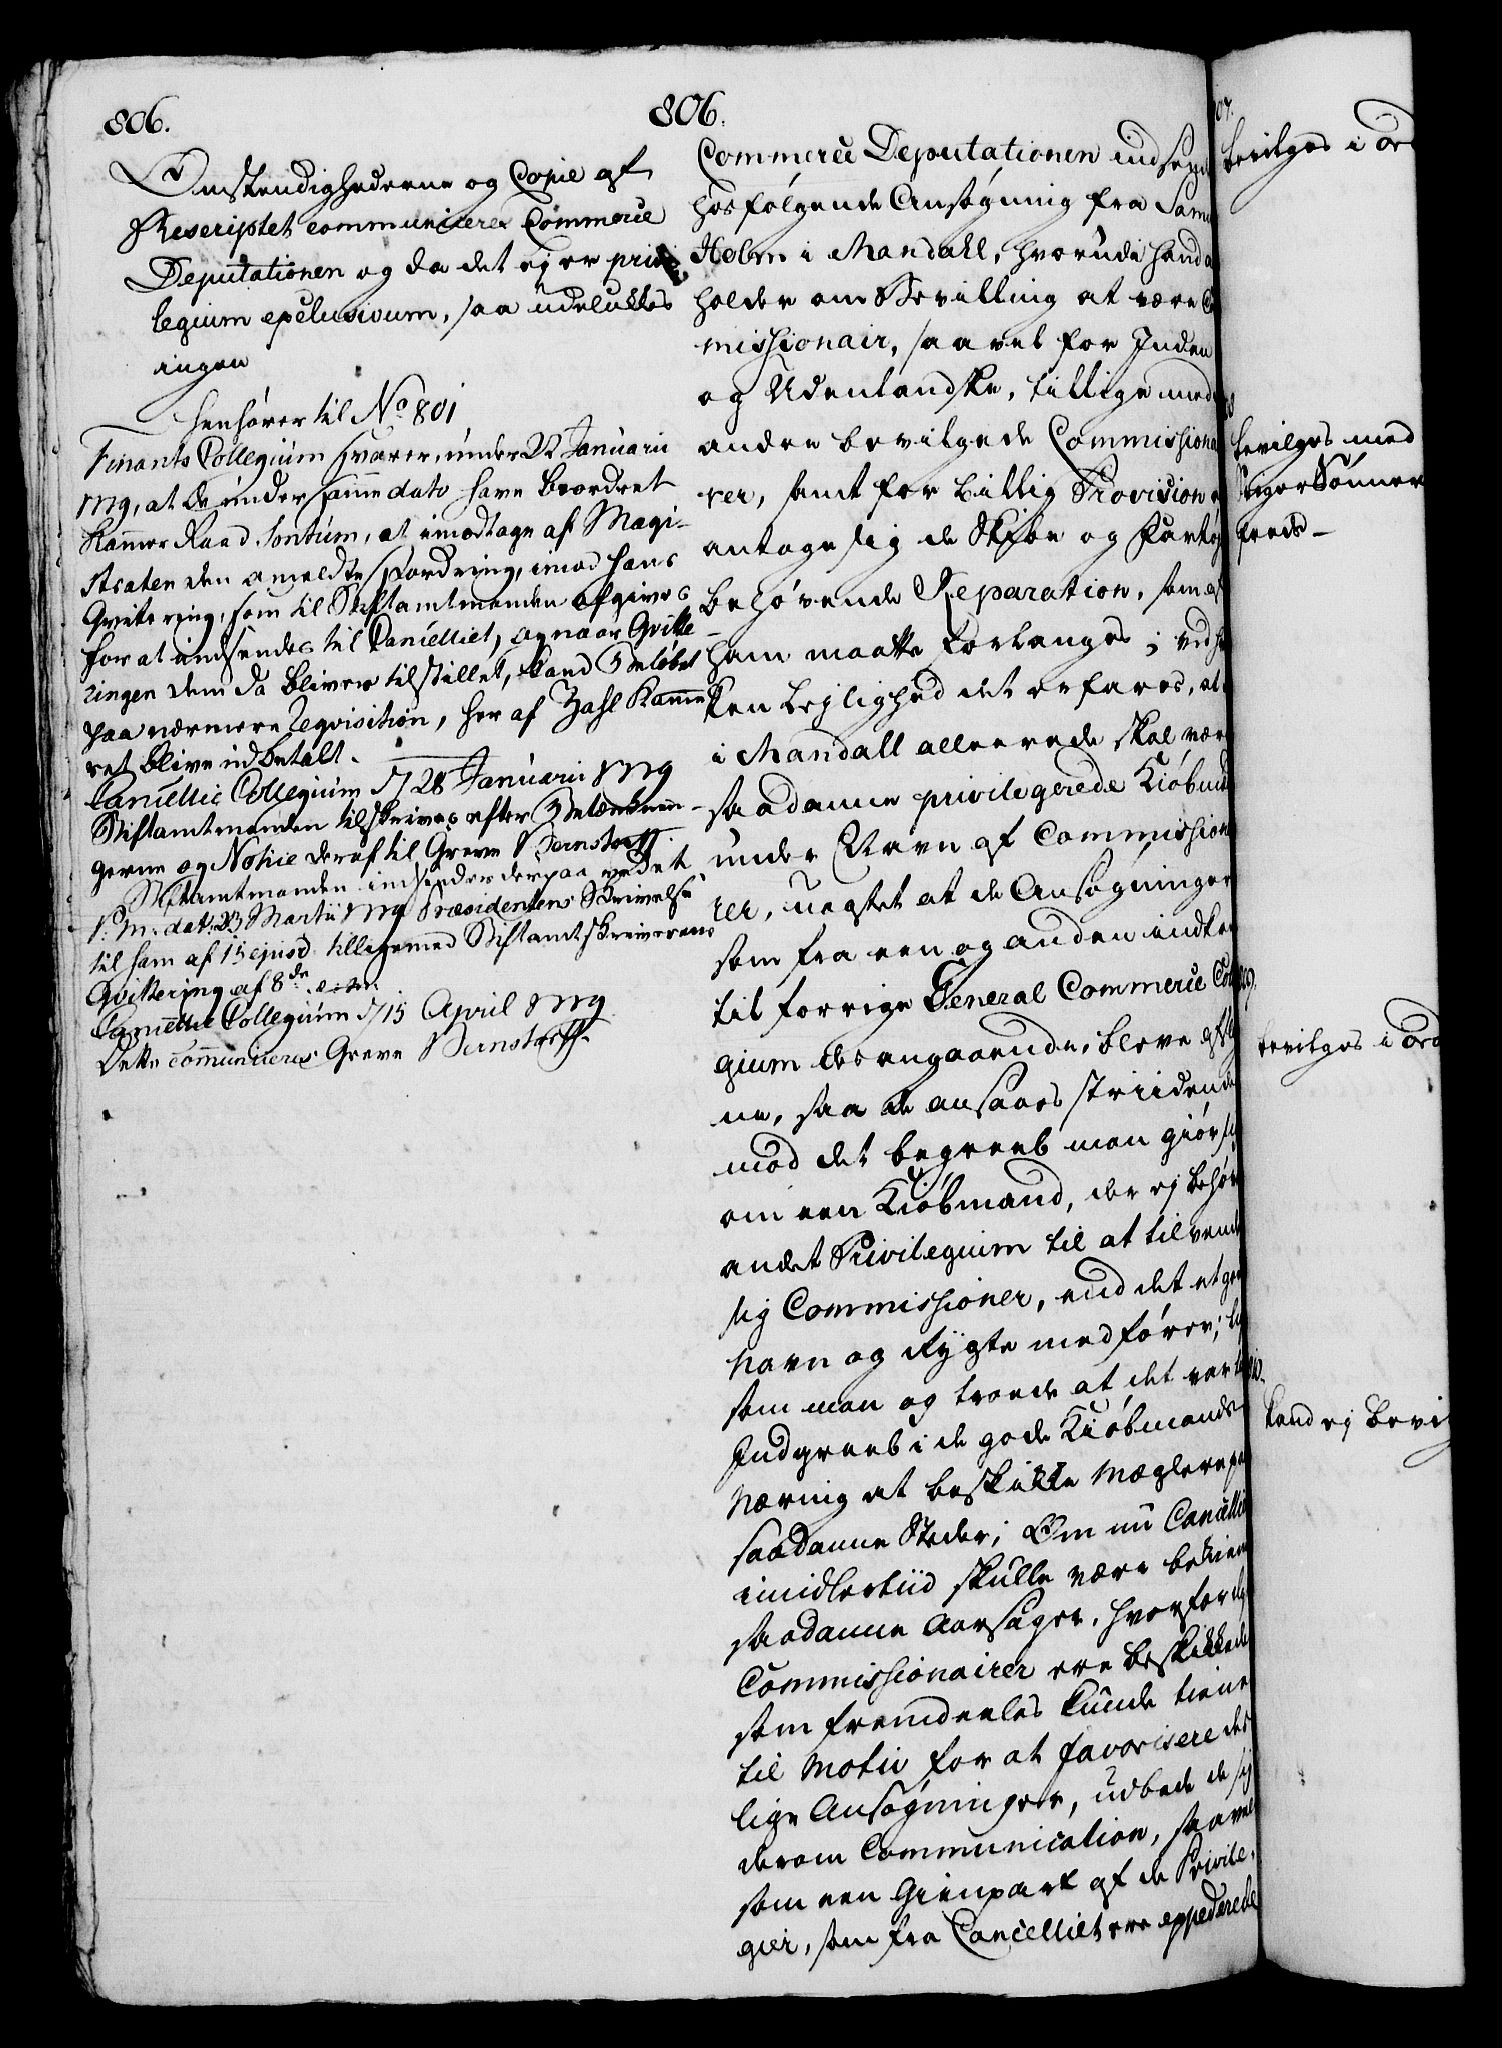 806.
Omstendighederne og Copie af
Rescriptet communiceres Commerce
Deputationen og da det ej er privi-
legium exclusivum, saa udelukkes
ingen
henhører til No 801
Finants Collegium svarer, under 22 Januarii
1779, at de under samme dato have beordret
Kammer Raad Sontum, at imodtage af Magi-
straten den anmeldte Fordring, imod hans
Qvitering, som til Stiftamtmanden afgives
for at indsendes til Cancelliet, og naar Qvitte
ringen dem da bliver tilstillet, kand Beløbet
paa nærmere Reqvisition, her af Zahl Kamme
ret blive udbetalt.
Cancellie Collegium d 28 Januarii 1779
Stiftamtmanden tilskrives efter Betænknin-
gerne og Notice deraf til Greve Bernstorff.
Stiftamtmanden indsender derpaa vedet
P. M. dat: 23 Martii 1779 Præsidentens Skrivelse
til ham af 15 ejusd. tilligemed Stiftamtskriverens
Qvittering af 8de
Cancellie Collegium d 15 April 1779
Dette communiceres Greve Bernstorff.
806.
Commerce Deputationen indsen
hosfølgende Ansøgning fra Sam
Holm i Mandall, hvorudi hand
holder om Bevilling at være Co
missionair, saavel for Inden
og Udenlandske, tillige med
andre bevilgede Commissiona
rer, samt for billig Provision
antage sig de Skibe og Fartøy
behøvende Reparation, som af
ham maatte forlanges; ved h
ken Lejlighed det erfares, at
i Mandall allerede skal vær
saadanne privilegerede Kiøbm
under Navn af Commission
rer, uagtet at de Ansøgninger
som fra een og anden indko
til forrige General Commerce Col
gium desangaaende, bleve afsl
ne, saa de ansaaes striidende
mod det begreeb man giør si
om een Kiøbmand, der ej behøv
andet Privilegium til at tilvend
sig Commissioner, end det et go
Navn og Rygte medfører; li
som man og troede at det var
Indgreeb i de gode Kiøbmænds
Næring at beskikke Mæglere paa
saadanne Steder; Om nu Cancelli
imidlertiid skulle være bekien
saadanne Aarsager, hvorfor
Commissionairer ere beskikkede
som fremdeeles kunde tiene
til Motiv for at favorisere des
lige Ansøgninger, udbede de sig
derom Communication, saavel
som een Gienpart af de Privile-
gier, som fra Cancelliet ere expederede
07.
bevilges i Ord
bevilges med
Sønner
freds-
bevilges i Ord
kand ej bevi